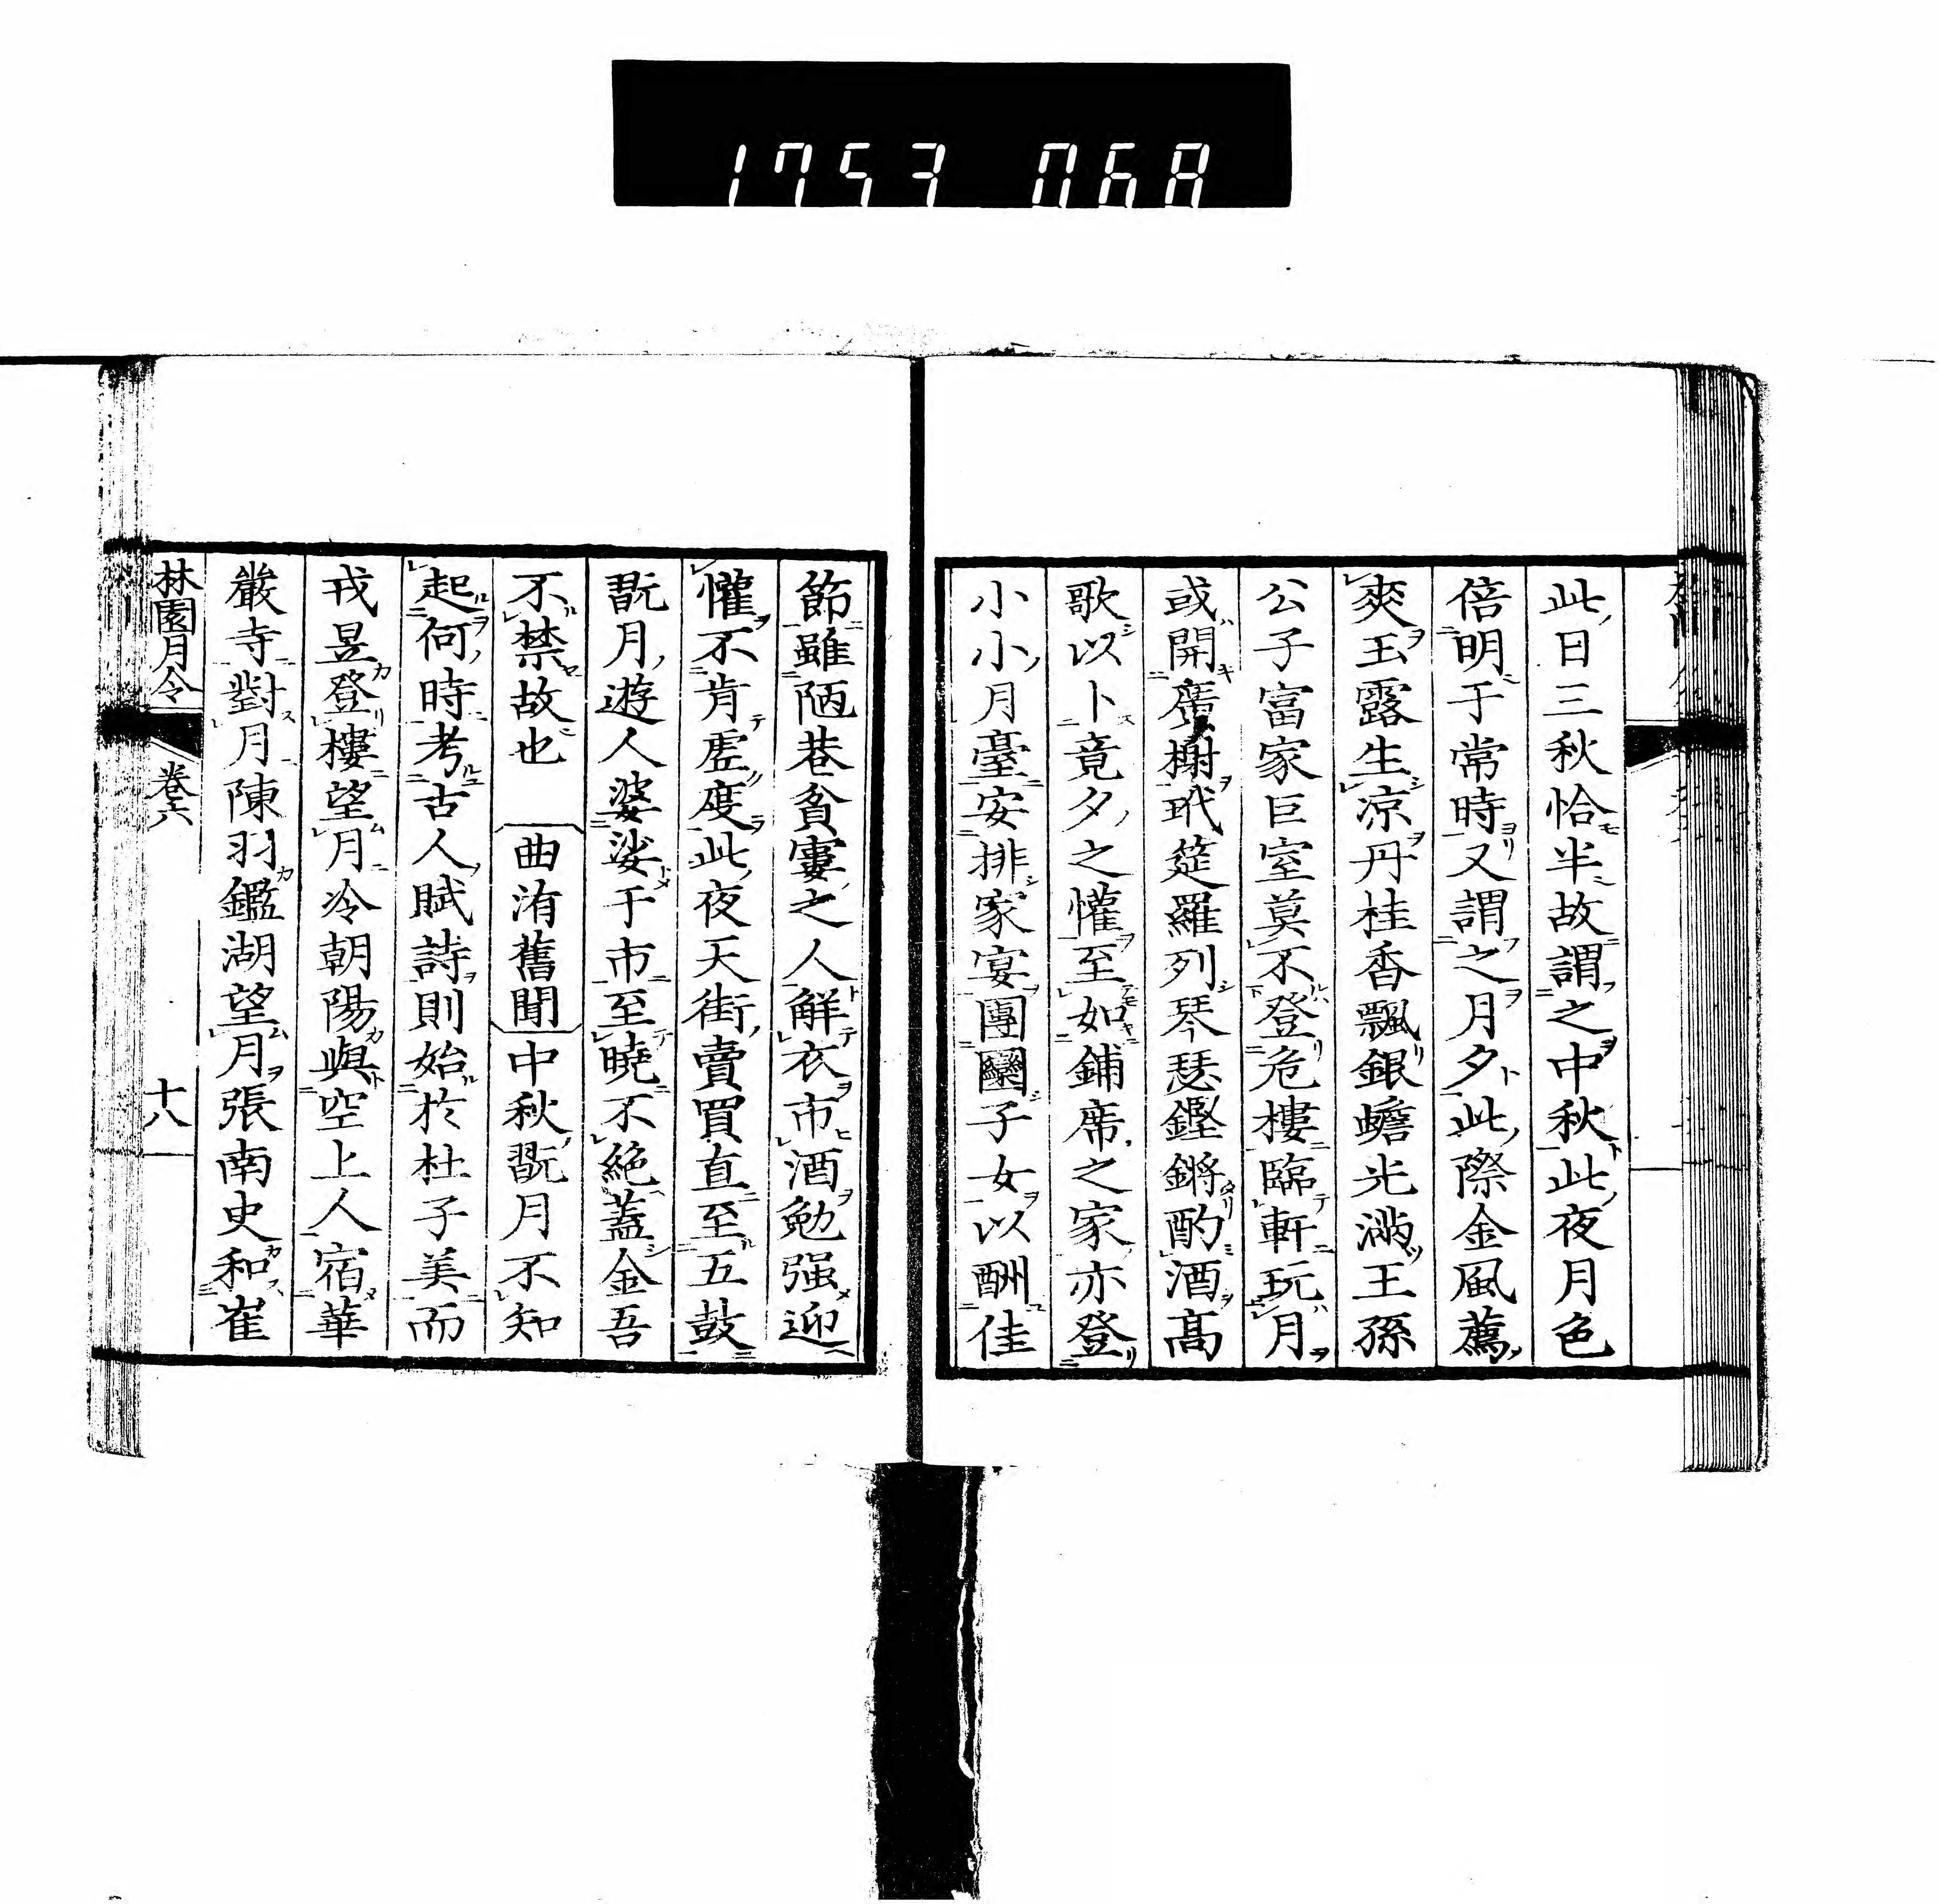 1753 068
此日三秋恰半故謂之中秋此夜月色
倍明于常時又謂之月夕此際金風薦
爽玉露生凉丹桂香飄銀蟾光滿王孫
公子富家巨室莫不登危樓臨軒玩月
或開廣榭玳筵羅列琴瑟鏗鏘酌酒高
歌以卜竟夕之懽至如鋪席之家亦登
小小月臺安排家宴團圞子女以酬佳
節雖陋巷貧窶之人解衣市酒勉强迎
懽不肯虛度此夜天街賣買直至五鼓
翫月遊人婆娑于市至曉不絶蓋金吾
不禁故也 曲洧舊聞 中秋翫月不知
起何時考古人賦詩則始於杜子美而
戎昱登樓望月冷朝陽與空上人宿華
嚴寺對月陳羽鑑湖望月張南史和崔
林園月令 卷六 十八